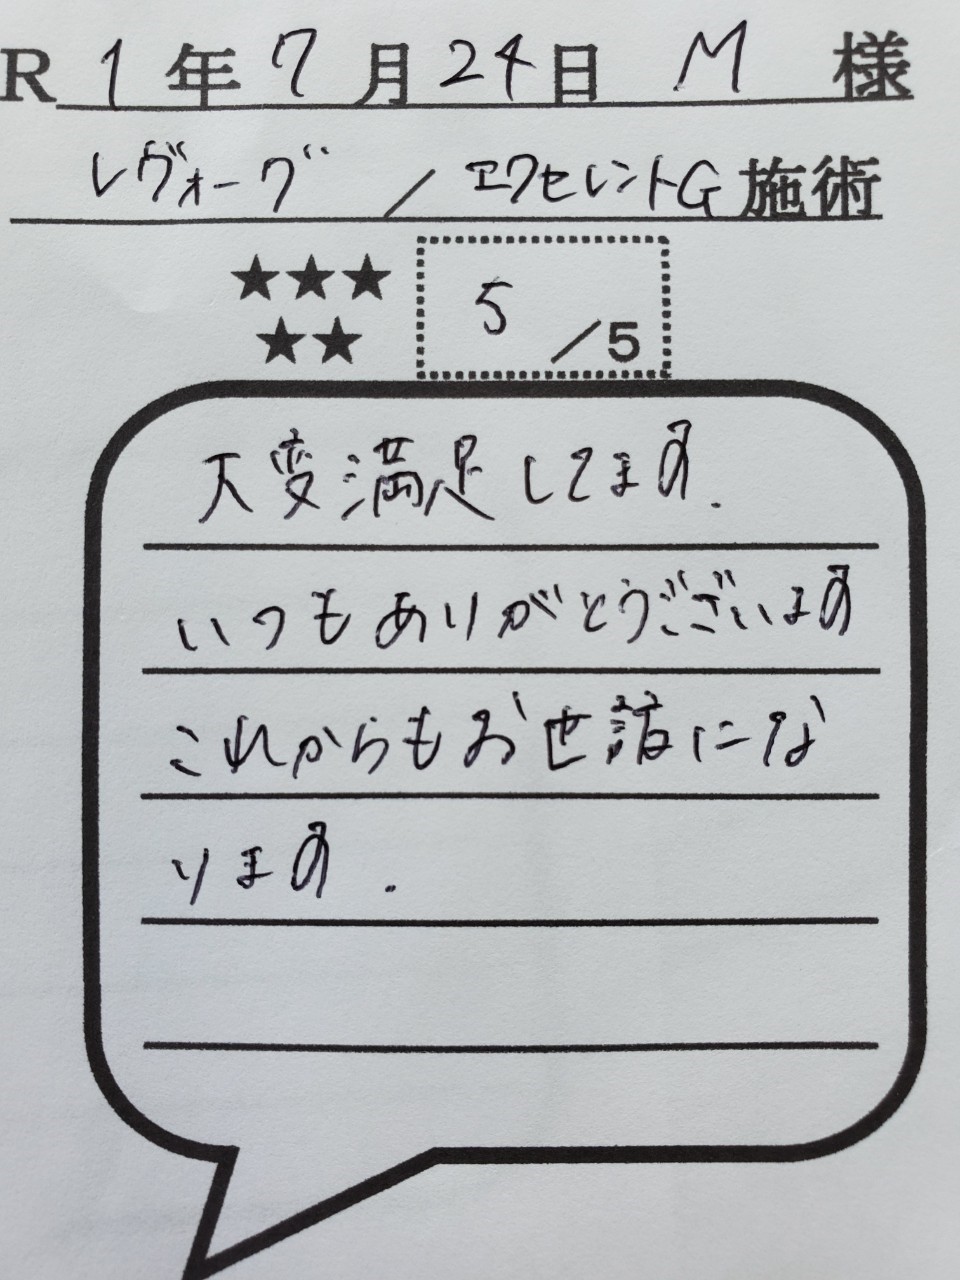 R 1年7月24日 M 様
レヴォーグ / エクセレントG 施術
★★★
★★ 5 /5
大変満足してます.
いつもありがとうございます
これからもお世話にな
ります.